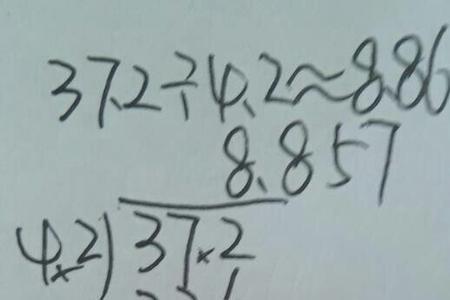 37.2÷4.2≈8.86
8.857
4.2)37.2